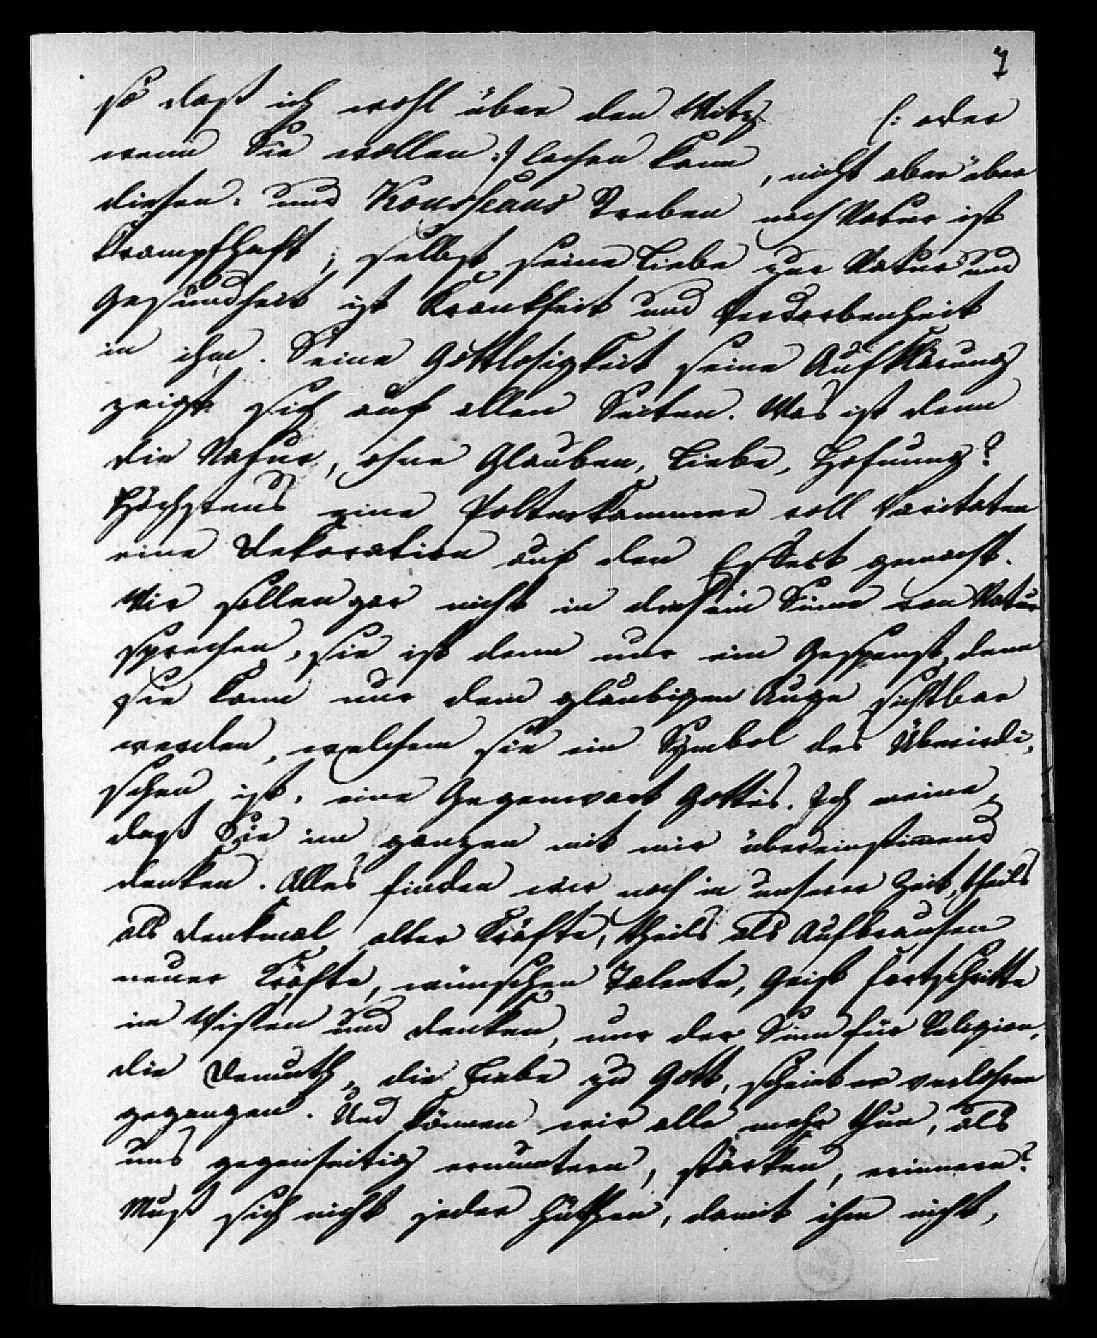 7
so daß ich wohl über den Witz (: oder
wenn Sie wollen :) lachen kann, nicht aber über
diesen. und Rousseaus Treben nach Natur ist
krampfhaft; selbst seine Liebe zur Natur und
Gesundheit ist Krankheit und Verdorbenheit
in ihm. Seine Gottlosigkeit, seine Aufklärung
zeigt sich auf allen Seiten. Was ist denn
die Natur, ohne Glauben, Liebe, Hofnung?
Höchstens eine Polterkammer voll Raritäten
eine Dekoration auf den Effect gemacht.
Wir sollen gar nicht in diesem Sinne von Natur
sprechen, sie ist denn nur ein Gespenst, denn
sie kann nur dem gläubigen Auge sichtbar
werden, welchem sie ein Symbol des Überirdi-
schen ist, eine Gegenwart Gottes. Ich meine,
daß Sie im ganzen mit mir übereinstimmend
denken. Alles finden wir noch in unserer Zeit, theils
als Denkmal alter Kräfte, theils als Aufbrausen
neuer Kräfte, wünschen Talente, Geist Fortschritte
in Wissen und Denken, nur der Sinn für Religion,
die Demuth, die Liebe zu Gott, scheint er verlohren
gegangen. Und können wir alle mehr thun, als
uns gegenseitig ermuntern, stärken, erinnern?
Muß sich nicht jeder hüthen, damit ihm nicht,